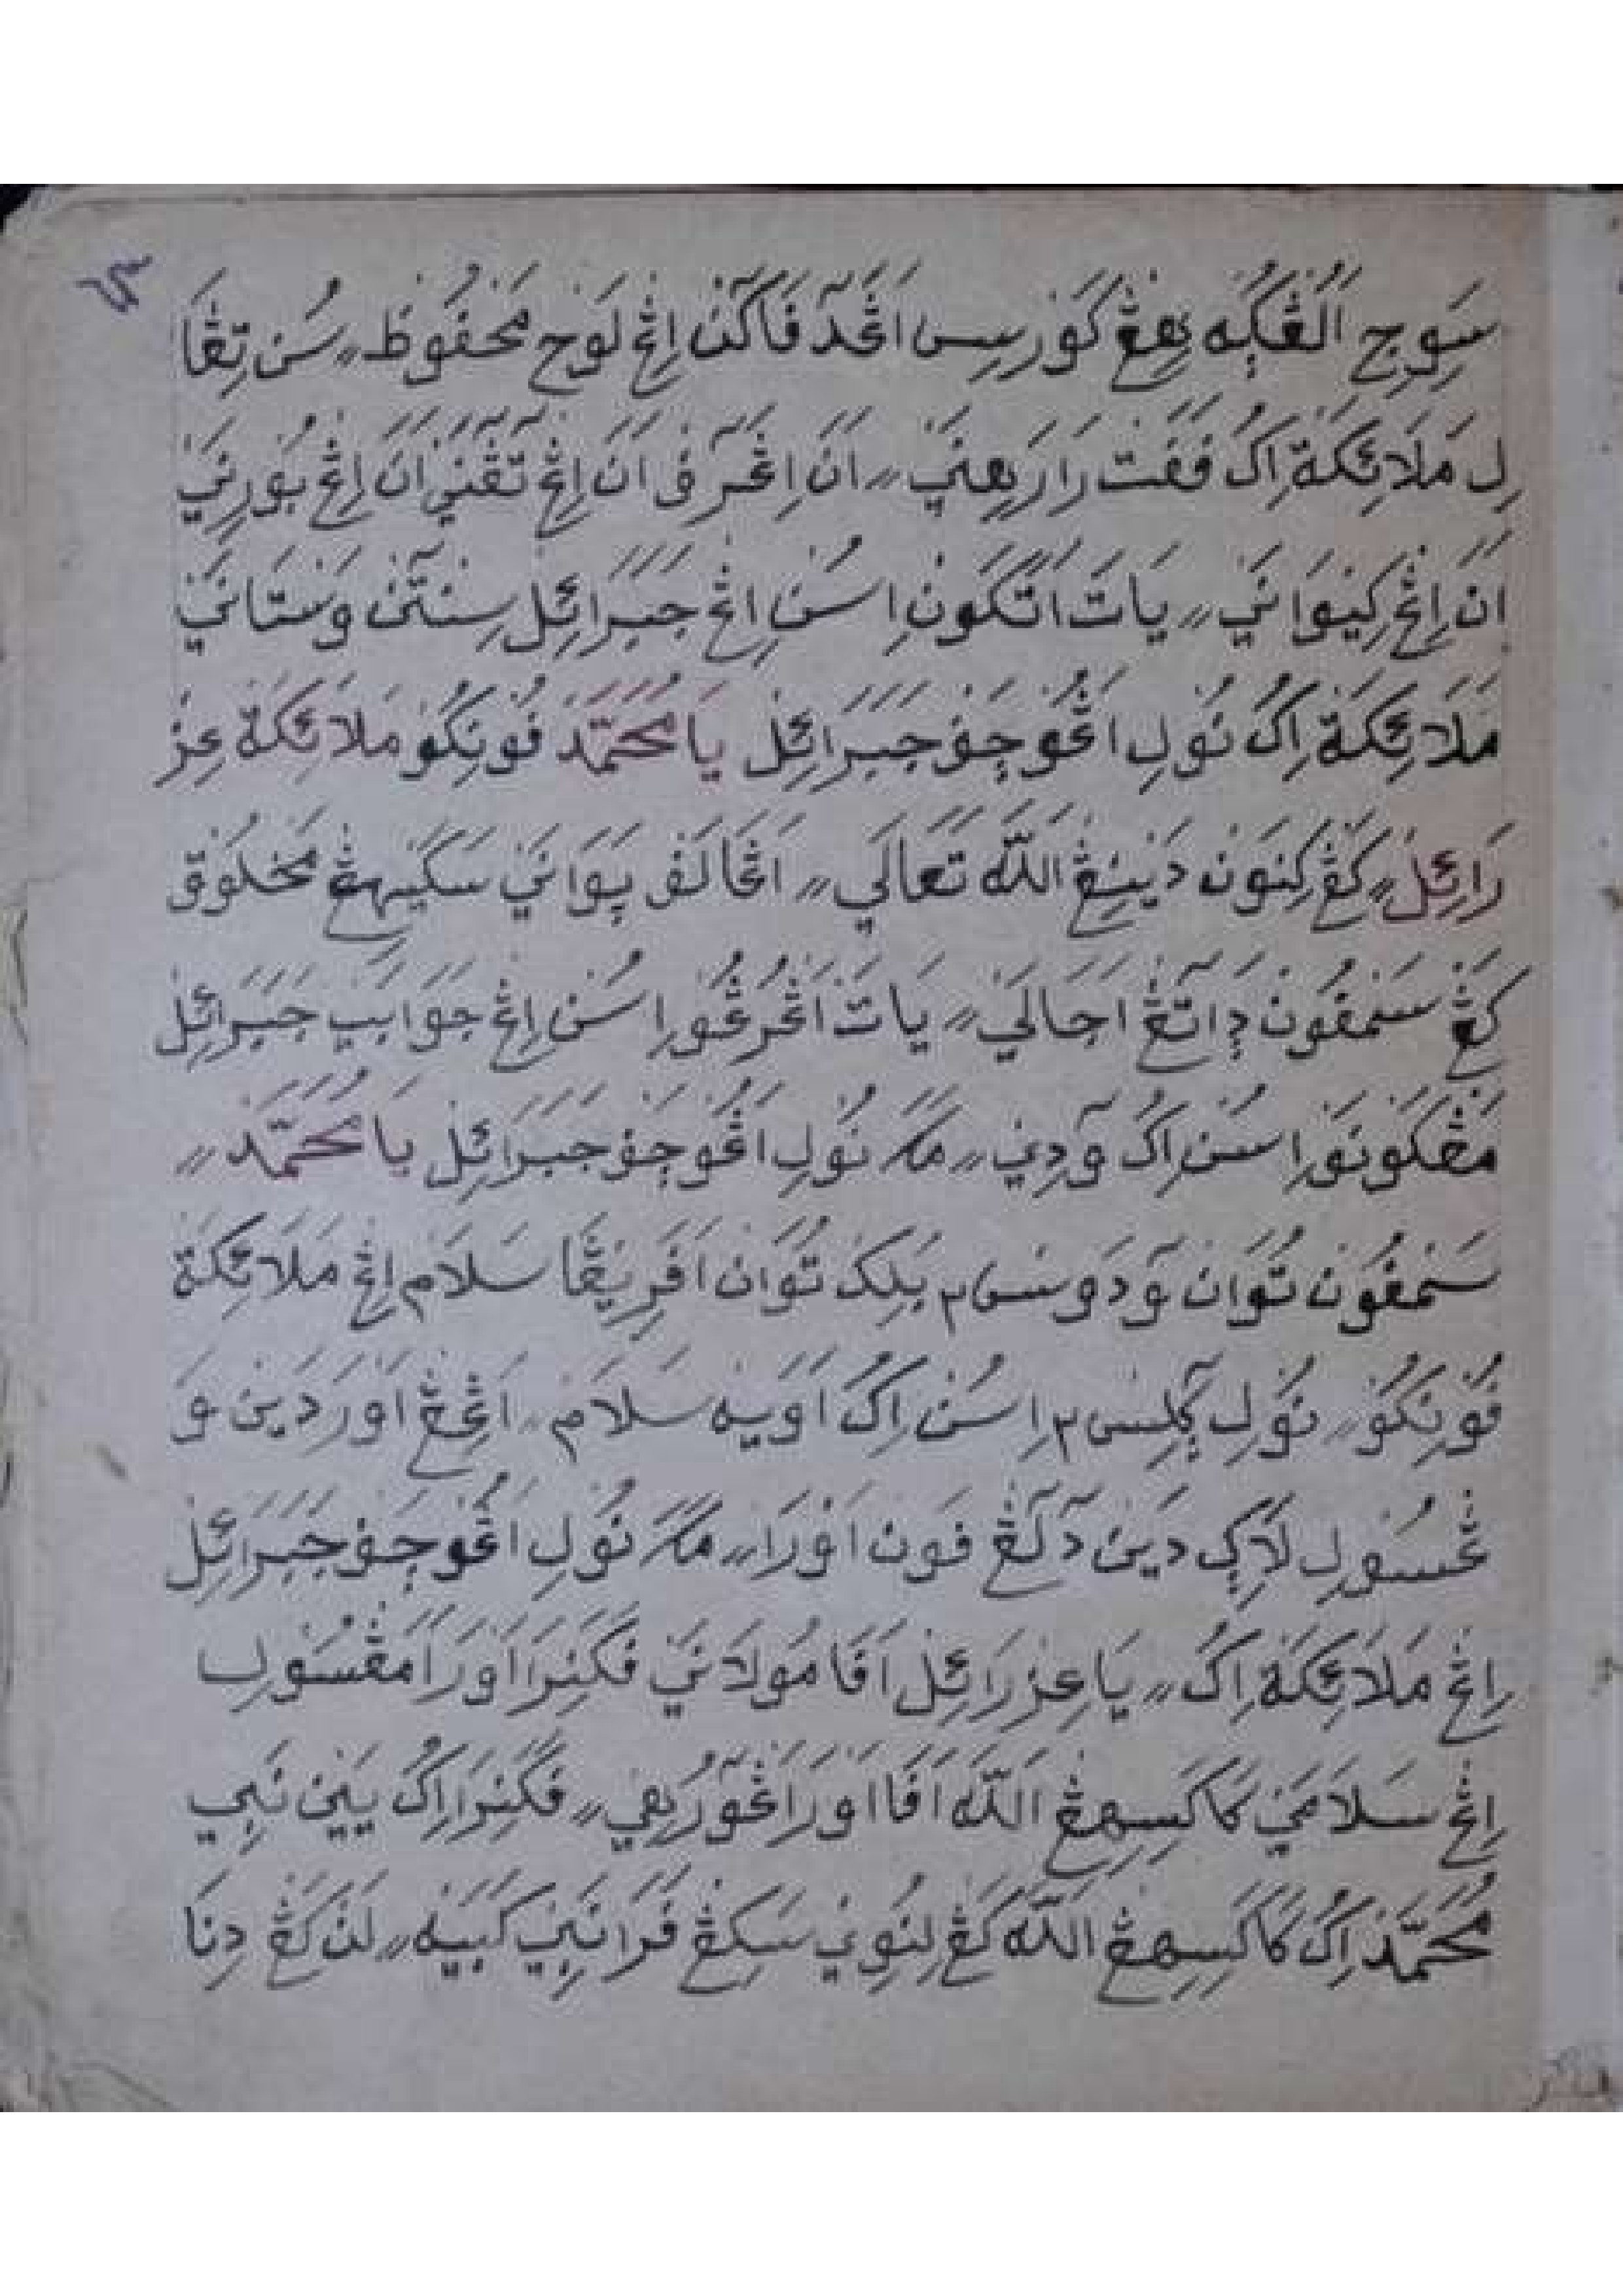 سَوِجِ اَلُڠڮُيه بٍڠِڠْ كَوُرْسِس اَڠَدٓفَاكٓنْ اِڠْ لَوحِ مَحْفُوظ ٫٫ سُن تِڠَا
لِ مَلَائِكَةْ اِكُ فَفَتْ رَارَيهِنَيْ ٫٫ اَنَ اِڠْرٓفْ اَنَ اِڠْ تٓڠٓنَيْ اَنَ اِڠْ بُوْرِنَيْ
اَنَ اِڠْ كِيوَانَيْ ٫٫ يَاتَ اَتَكَونْ اِسُنْ اِڠْ جَبَرَائِلْ سِنْتٓنْ وَسْتَانَيْ
مَلَائِكَةْ اِكُ نُوْلِ اَڠُوْچَفْ جَبَرَائِلْ يَا مُحَمَّدْ فُوْنِكُوْ مَلَائِكَةْ عِزْ
رَائِلْ ٫٫ كَڠْ كِنَونْ دَيْنِڠْ اللّٰه تَعَالَى ٫٫ اَڠَالَفْ پَوَانَيْ سَكَيْهِڠْ مَخْلُوقْ
كَڠْ سَمْفُونْ دَاتٓڠْ اَجَالَيْ ٫٫ يَاتَ اَڠْرُڠُوْ اِسُنْ اِڠْ جَوَابَيْ جَبَرَائِلْ
مَڠْكَونَوْ اِسُنْ اِكُ وٓدِيْ ٫٫ مَكَ نُوْلِ اَڠُوْچَفْ جَبَرَائِلْ يَا مُحَمَّدْ ٫٫
سَمْفُونْ تُوَانْ وٓدَوسْ٢ بَلِكْ تُوَانْ اَفَرِيْڠَا سَلَامْ اِڠْ مَلَائِكَةْ
فُوْنِكُوْ ٫٫ نُوْلِ ڮٓلِسْ٢ اِسُنْ اِكُ اَوَيْه سَلَامْ ٫٫ اَڠِڠْ اَوْرَ دَيْنْ وَ
ڠْسُولِ لَاڮِ دَيْنْ دٓلٓڠْ فَونْ اَوْرَا ٫٫ مَكَ نُوْلِ اَڠُوْچَفْ جَبَرَائِلْ
اِڠْ مَلَائِكَةْ اِكُ ٫٫ يَا عِزْرَائِلْ اَفَا مُولَانَيْ فَكَنِرَا اَوْرَا مَڠْسُولِ
اِڠْ سَلَامَيْ كَاكَسِهِڠْ اَللّٰه اَفَا اَوْرَا اَڠَوْرُهِيْ ٫٫ فَكَنِرَا اِكُ يَيْنْ نَبِي
مُحَمَّدْ اِكُ كَاكَسِهِڠْ اللّٰه كَڠْ لِنُوِيْ سَكِڠْ فَرَا نَبِيْ كَبَيْه ٫٫ لَنْ كَڠْ دِنَا